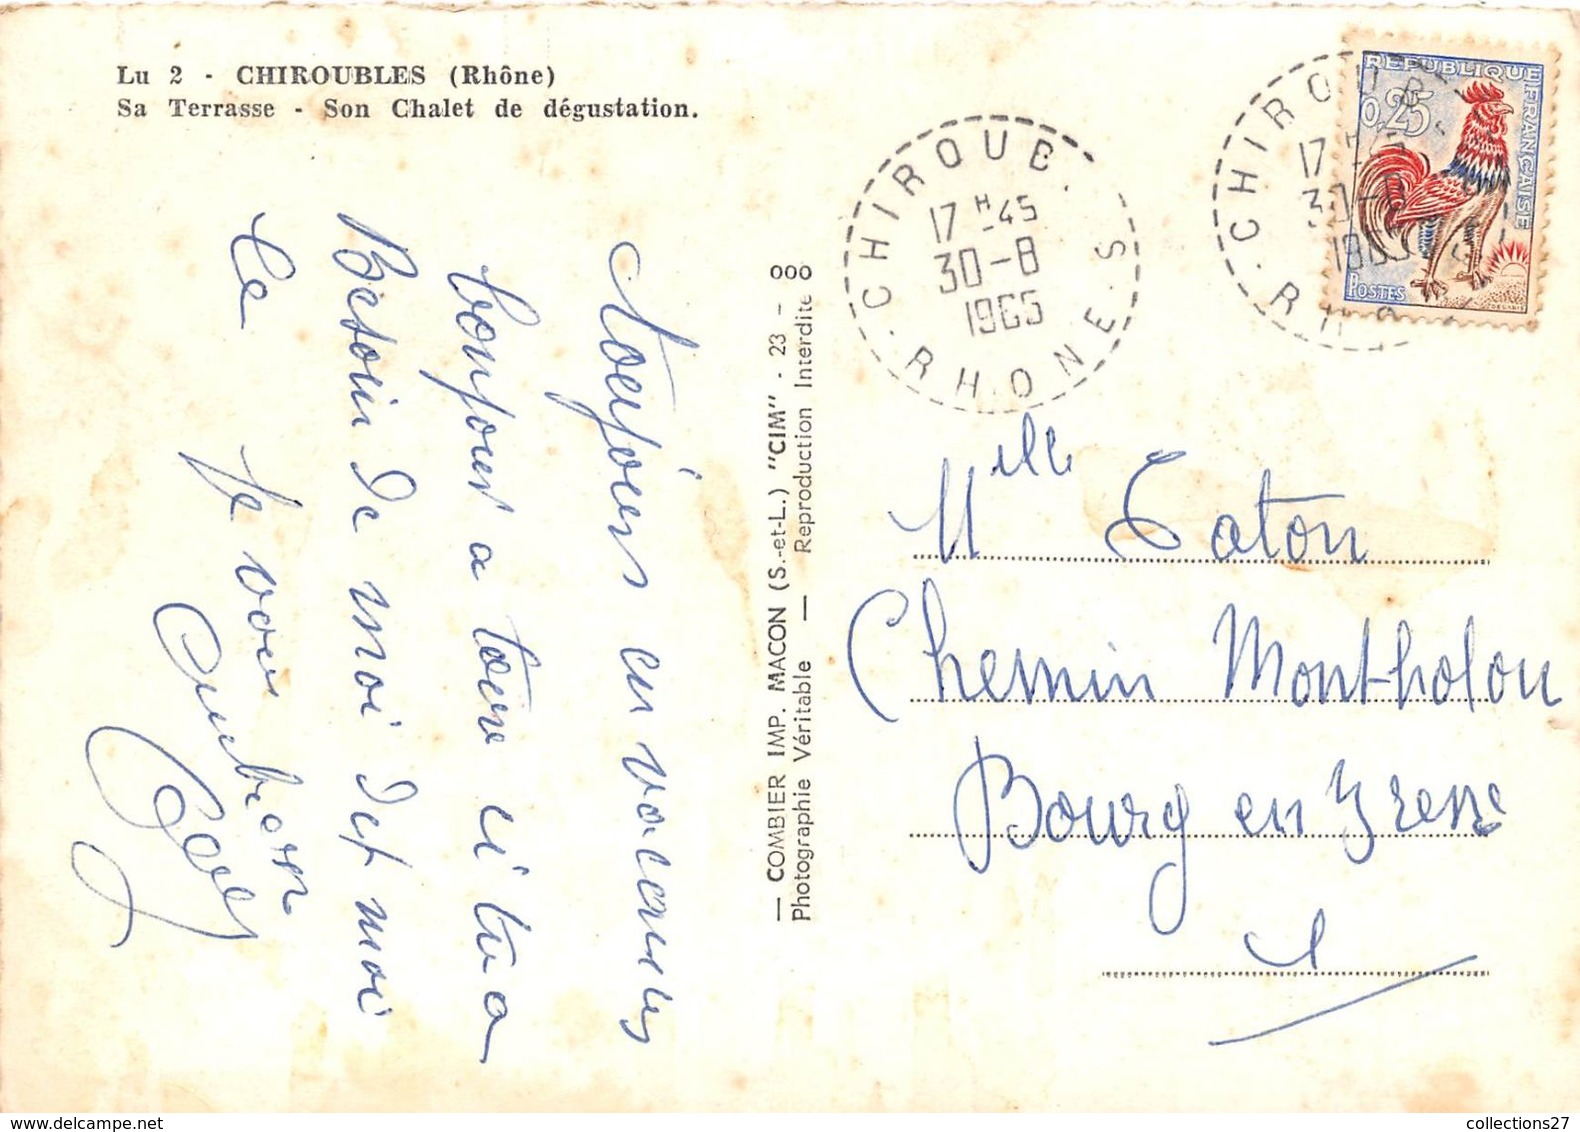 Lu 2 - CHIROUBLES (Rhône)
Sa Terrasse - Son Chalet de dégustation.
Toujours en vacances
bonjour a toure si tu a
Besoin de moi det moi
le je vous
— COMBIER IMP. MACON (S.-et-L.) "CIM" - 23 - 000
Photographie Véritable — Reproduction Interdite
CHIROUB S
17 H 45
30-8
1965
RHONE
CHIROUB
17 H
30-8
196
RHO
REPUBLIQUE FRANÇAISE
0,25
POSTES
Mlle Caton
Chemin Montholon
Bourg en Bresse
collections27